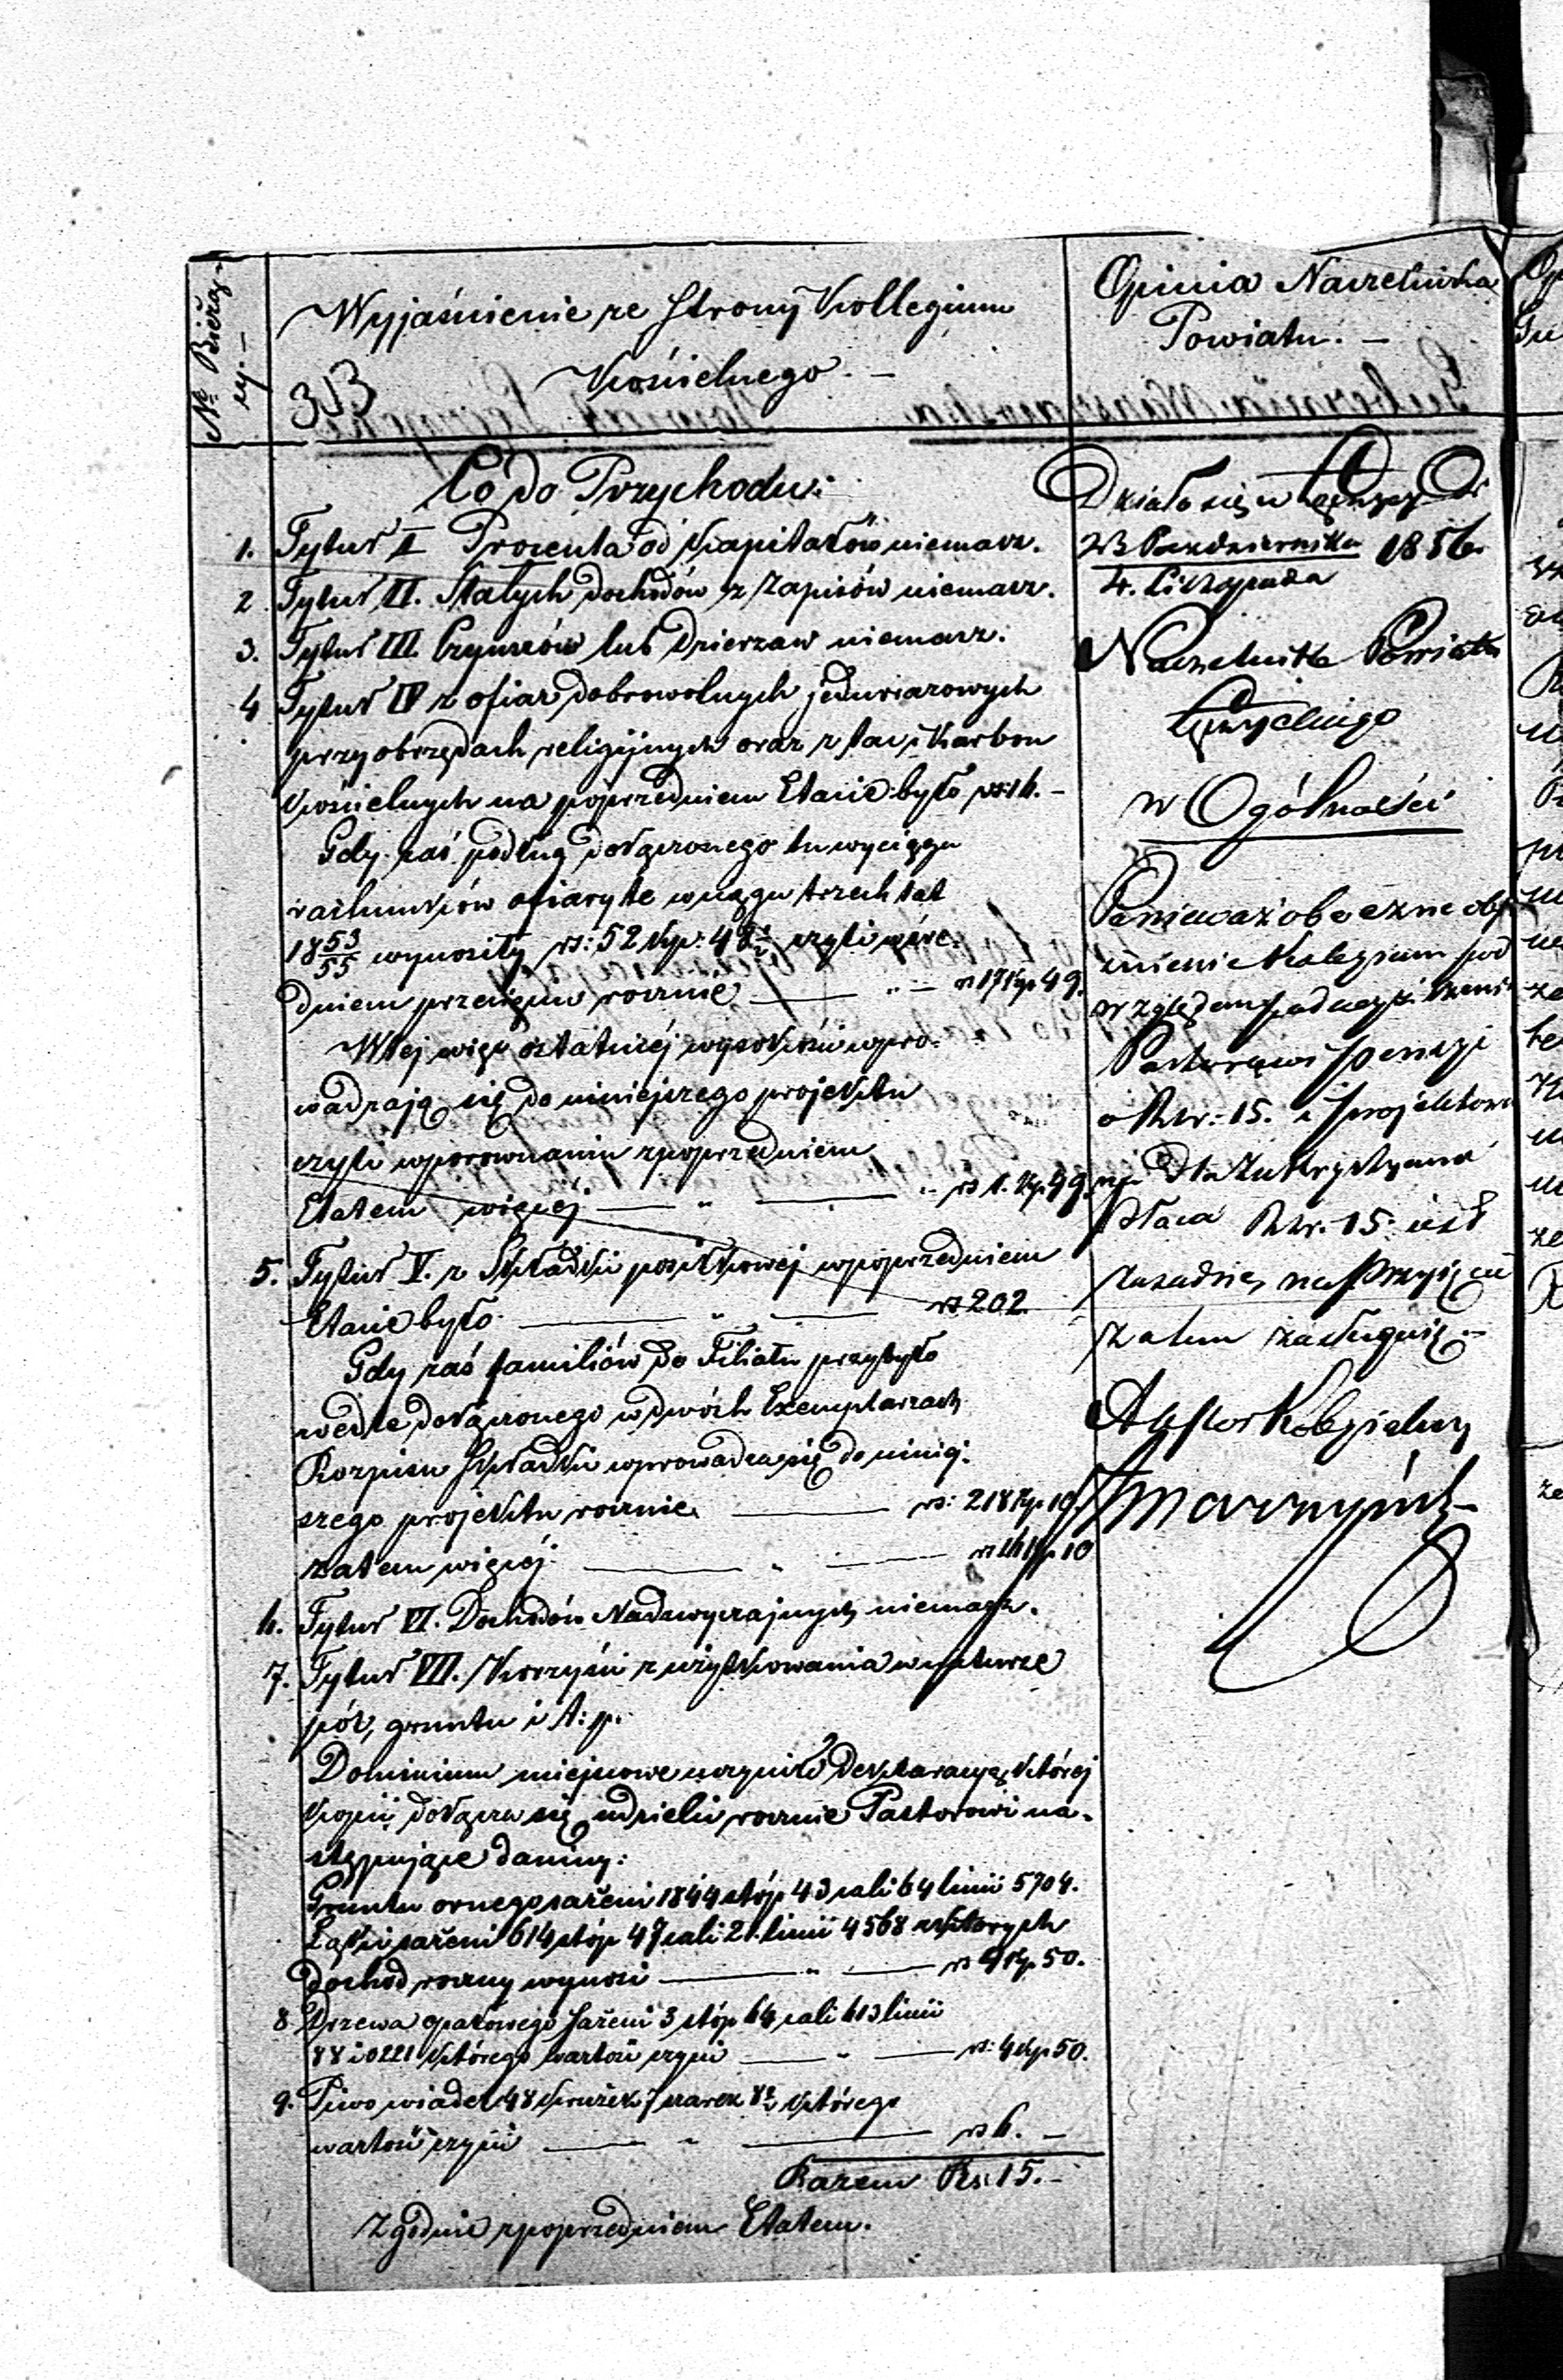 Nº Bieżą-
cy. —
Wyjaśnienie ze Strony Kollegium
Kościelnego. —
313
Opinia Naczelnika
Powiatu. —
Co do Przychodu:
1. Tytuł I Procenta od Kapitałów niemasz.
2. Tytuł II. Stałych dochodów z Zapisów niemasz.
3. Tytuł III. Czynszów lub Dzierzaw niemasz.
4 Tytuł IV z ofiar dobrowolnych jednorazowych
przy obrzędach religijnych oraz z tac i Karbon
Kościelnych na poprzedniem Etacie było rs: 16. —
Gdy zaś podług dołączonego tu wyciągu
rachunków ofiary te w ciągu trzech lat
18 53/55 wynosiły rs: 52 kp: 48 ½ czyli w śre-
dniem przecięciu rocznie — " — rs 17 kp 49.
W tej więc ostatniéj wysokości wpro-
wadzają się do niniejszego projektu
czyli w porownaniu z poprzedniem
Etatem więcéj — " — " rs 1. kp 49.
5. Tytuł V. z Składki posiłkowej w poprzedniem
Etacie było — " — rs 202.
Gdy zaś familiów do Filiału przybyło
wedle dołączonego w dwóch Exemplarzach
Rozpisu Składki wprowadza się do niniej-
szego projektu rocznie — rs: 218 kp 10
zatem więcéj — " — rs 16 kp 10
6. Tytuł VI. Dochodów Nadzwyczajnych niemasz.
7. Tytuł VII. Korzyści z użytkowania w naturze
pól, gruntu i t: p.
Dominium miejscowe uczynił deklaracyą, której
kopii dołącza się udzielić rocznie Pastorowi na-
stępujące daniny:
Gruntu ornego sażeni 1844 stóp 43 cali 64 linii 5704.
Łąki sażeni 614 stóp 47 cali 21 linii 4568 z których
dochod roczny wynosi — " — rs 4 kp 50.
8 Drzewa opałowego sażeni 3 stóp 64 cali 613 linii
88 i 0221 którego wartość czyni — " — rs: 4 kp 50.
9. Piwo wiader 48 krużek 7 czarek 8 ½ którego
wartość czyni — " — rs 6. —
Razem Rs: 15. —
Zgodnie z poprzedniem Etatem.
Działo się w Łęczycy d.
23 Października 1856.
4. Listopada
Naczelnik Powiatu
Łęczyckiego
w Ogólności
Ponieważ obeczne obja
śnienie Kolegium pod
względem podwyższenia
Pastorowi pensyi
o Rsr: 15. i projektowa
na Dla Zakrystyana
płaca Rsr. 15. jest
zasadne, na przyjęcie
zatem zasługuie. —
Assesor Kolegialny